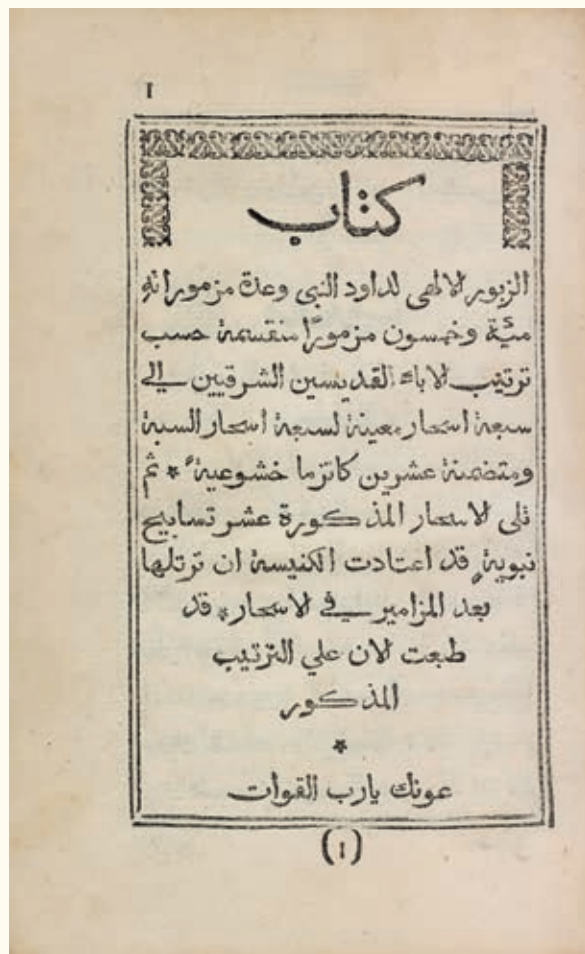 ١
كتاب
الزبور الالهى لداود النبى وعدة مزموراته
مئية وخمسون مزمورًا منقسمة حسب
ترتيب الاباء القديسين الشرقيين الي
سبعة اسحار معينة لسبعة اسحار السبة
ومتضمنة عشرين كاتزما خشوعية * ثم
تلى الاسحار المذكورة عشر تسابيح
نبوية قد اعتادت الكنيسة ان ترتلها
بعد المزامير في الاسحار * قد
طبعت الان علي الترتيب
المذكور
*
عونك يارب القوات
(١)